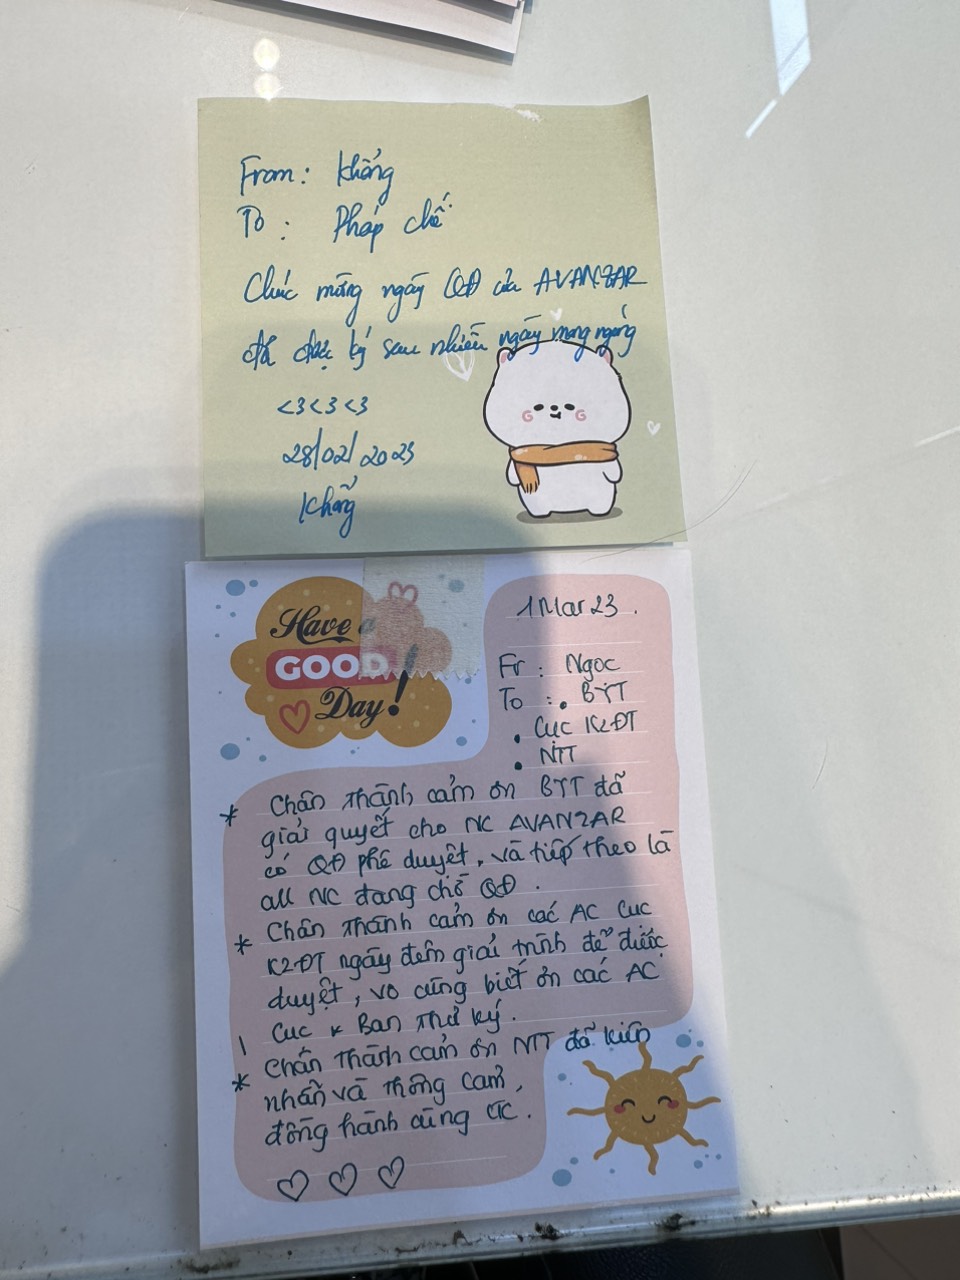 From: Khảng
To: Pháp chế
Chúc mừng ngày QĐ của AVANZAR
đã được ký sau nhiều ngày mong ngóng
<3<3<3
28/02/2023
Khảng
Have a
GOOD
Day!
1 Mar 23.
Fr: Ngọc
To: • BYT
• Cục K2ĐT
• NTT
* Chân thành cảm ơn BYT đã
giải quyết cho NC AVANZAR
có QĐ phê duyệt, và tiếp theo là
all NC đang chờ QĐ.
* Chân thành cảm ơn các AC Cục
K2ĐT ngày đêm giải trình để được
duyệt, vô cùng biết ơn các AC
Cục & Ban Thư ký.
* Chân thành cảm ơn NTT đã kiên
nhẫn và thông cảm,
đồng hành cùng